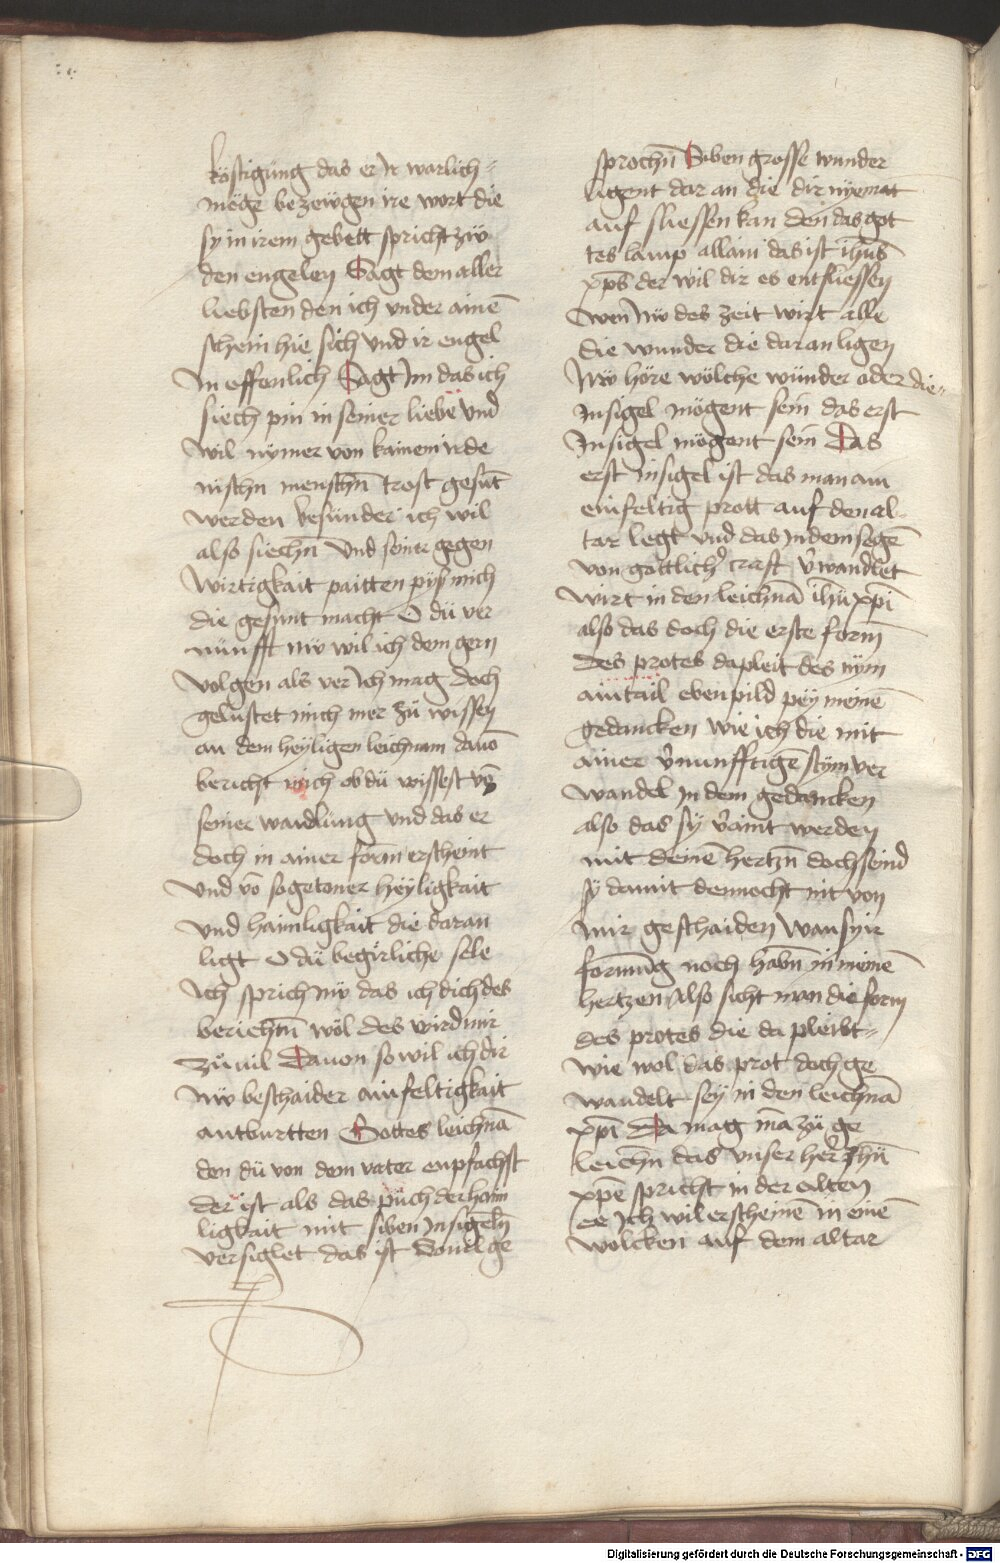 köstigung das er ir warlich
möge bezewgen ire wort die
sy in irem gebett spricht zw
den engelen Sagt dem aller
liebsten den ich vnder ainē
schein hie sich vnd ir engel
In effenlich Sagt im das ich
siech pin in seiner liebe vnd
wil nymer von kainem irde
nischn menschn trost gesūt
werden besunder ich wil
also siechn vnd seiner gegen
wirtigkait paitten pys mich
die gesunt macht O dü ver
nunfft nw wil ich dem gern
volgen als ver ich mag doch
gelustet mich mer zü wissen
an dem heyligen leichnam dauō
bericht mich ob dü wissest vō
seiner wandlung vnd das er
doch in ainer form erscheint
vnd vō sogetoner heyligkait
vnd haimligkait die daran
ligt O dü begirliche sele
Ich sprich nw das ich dich des
berichtn wöl des wird mir
zuuil Dauon so wil ich dir
nw beschaider ainfeltigkait
antburtten Gottes leichnā
den dü von dem vater enpfachst
der ist als das püch der haim
ligkait mit siben insigeln
versiglet das ist souil ge
sprochn Siben grosse wunder
ligent dar an die dir nyemat
auf sliessen kan den das got
tes lamp allain das ist ihūs
xp̄s der wil dir es entsliessen
Owen nw des zeit wirt alle
die wunder die dar an ligen
Nw höre wölche wunder oder die
insigel mögent sein das erst
Insigel mögent sein Das
erst insigel ist das man ain
einfeltig prott auf den al
tar legt vnd das in dem segē
von gottlicher craft v̄wandlet
wirt in den leichnā ihū xp̄i
also das doch die erste form
des protes da pleit des nym
aintail ebenpild pey meinē
gedancken wie ich die mit
ainer v̄nunfftigē stym ver
wandel in dem gedancken
also das sy v̄aint werden
mit deinē hertzn doch seind
sy damit dennocht nit von
mir geschaiden wan sy ir
formūg noch habn in meinē
hertzen Also sicht man die form
des protes die da pleibt
wie wol das prot doch ge
wandelt sey in den leichnā
xp̄i Da mag mā zü ge
leichn das vnser her ihū
xp̄e spricht in der alten
ee Ich wil erscheinē in einē
wolcken auf dem altar
Digitalisierung gefördert durch die Deutsche Forschungsgemeinschaft - DFG